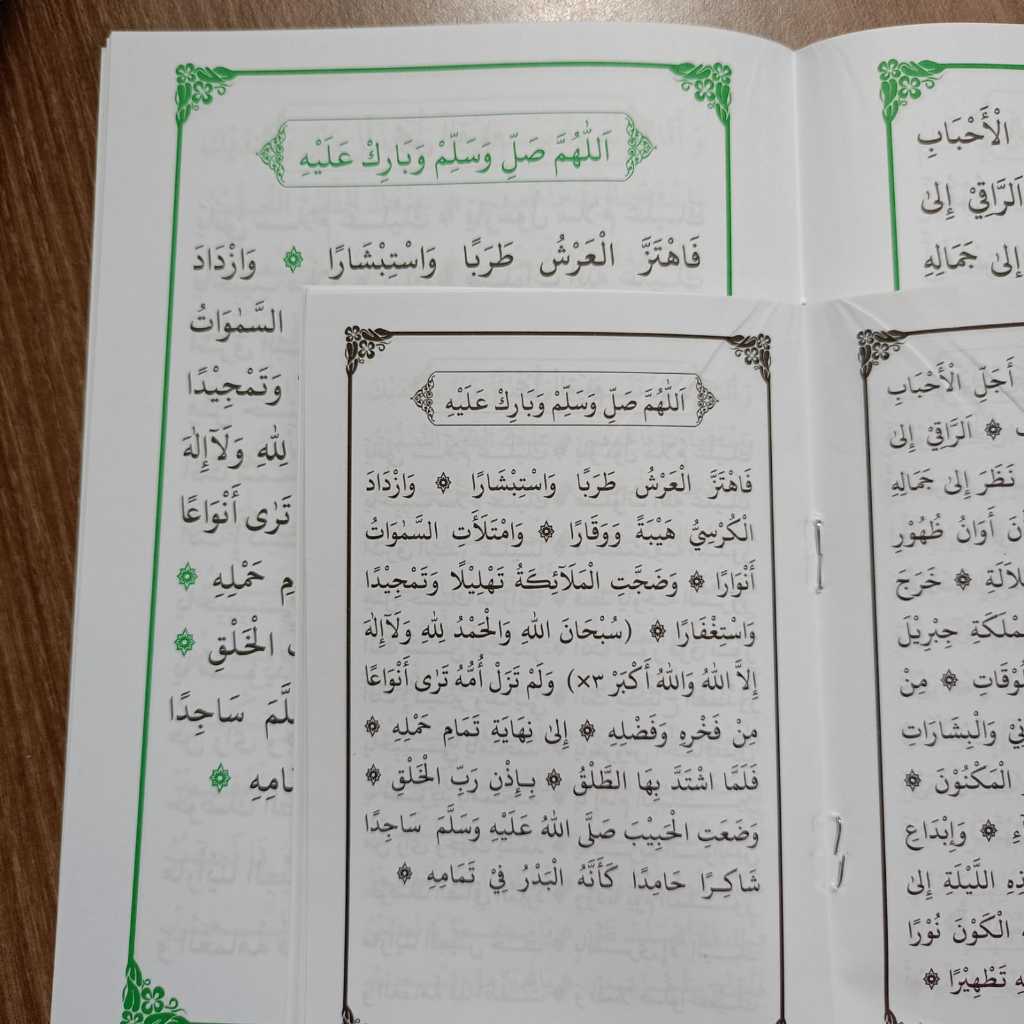 اَللّٰهُمَّ صَلِّ وَسَلِّمْ وَبَارِكْ عَلَيْهِ
فَاهْتَزَّ الْعَرْشُ طَرَبًا وَاسْتِبْشَارًا ۞ وَازْدَادَ
السَّمٰوَاتُ
وَتَمْجِيْدًا
لِلهِ وَلَآاِلٰهَ
تَرٰى أَنْوَاعًا
حَمْلِهِ ۞
الْخَلْقِ ۞
سَاجِدًا
۞
الْأَحْبَابِ
اَلرَّاقِيْ إِلىٰ
إِلىٰ جَمَالِهِ
اَللّٰهُمَّ صَلِّ وَسَلِّمْ وَبَارِكْ عَلَيْهِ
فَاهْتَزَّ الْعَرْشُ طَرَبًا وَاسْتِبْشَارًا ۞ وَازْدَادَ
الْكُرْسِيُّ هَيْبَةً وَوَقَارًا ۞ وَامْتَلَأَتِ السَّمٰوَاتُ
أَنْوَارًا ۞ وَضَجَّتِ الْمَلَآئِكَةُ تَهْلِيْلًا وَتَمْجِيْدًا
وَاسْتِغْفَارًا ۞ (سُبْحَانَ اللهِ وَالْحَمْدُ لِلهِ وَلَآاِلٰهَ
إِلاَّ اللهُ وَاللهُ أَكْبَرْ ٣×) وَلَمْ تَزَلْ أُمُّهُ تَرٰى أَنْوَاعًا
مِنْ فَخْرِهِ وَفَضْلِهِ ۞ إِلىٰ نِهَايَةِ تَمَامِ حَمْلِهِ ۞
فَلَمَّا اشْتَدَّ بِهَا الطَّلْقُ ۞ بِإِذْنِ رَبِّ الْخَلْقِ ۞
وَضَعَتِ الْحَبِيْبَ صَلَّى اللهُ عَلَيْهِ وَسَلَّمَ سَاجِدًا
شَاكِرًا حَامِدًا كَأَنَّهُ الْبَدْرُ فِيْ تَمَامِهِ ۞
أَجَلِّ الْأَحْبَابِ
۞ اَلرَّاقِيْ إِلىٰ
نَظَرَ إِلىٰ جَمَالِهِ
أَوَانُ ظُهُوْرِ
۞ خَرَجَ
جِبْرِيْلَ
۞ مِنْ
وَالْبِشَارَاتِ
الْمَكْنُوْنَ ۞
۞ وَإِبْدَاعِ
اللَّيْلَةِ إِلىٰ
الْكَوْنَ نُوْرًا
تَطْهِيْرًا ۞